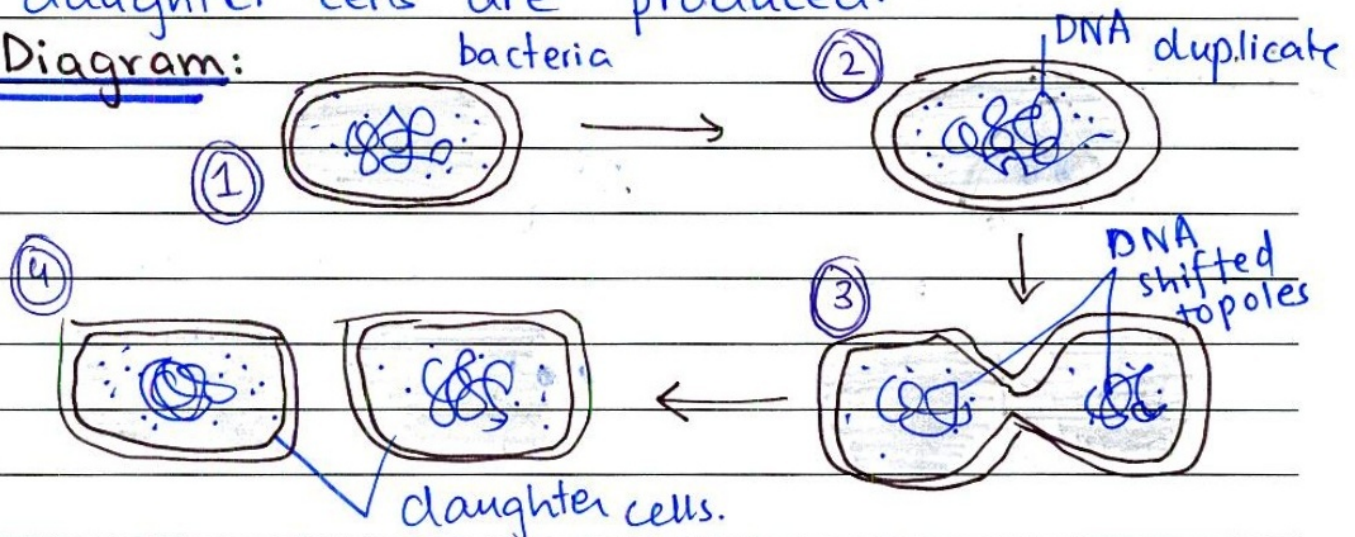 daughter cells are produced.
Diagram:
bacteria
1
2
DNA duplicate
3
DNA
shifted
topoles
4
daughter cells.